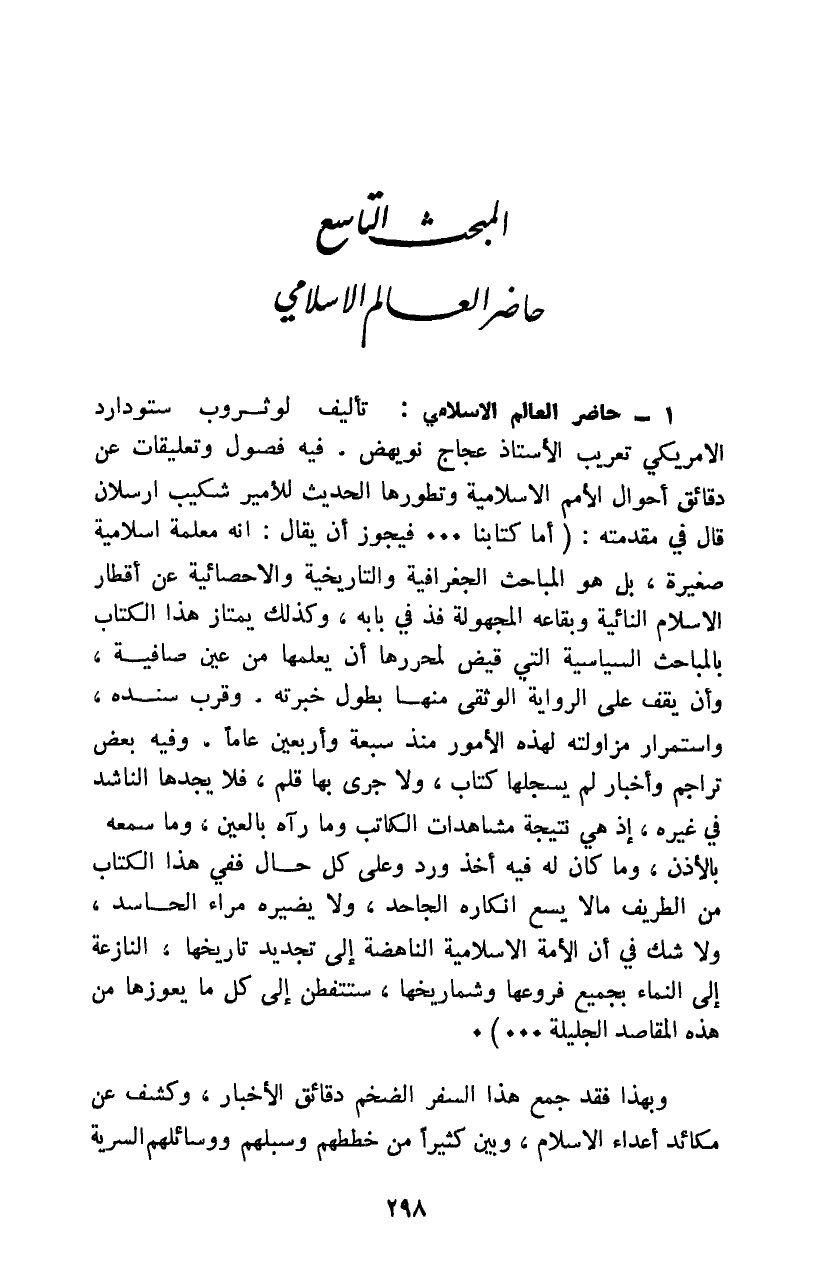 المبحث التاسع
حاضر العالم الاسلامي
١ ـ حاضر العالم الاسلامي : تأليف لوثروب ستودارد
الامريكي تعريب الأستاذ عجاج نويهض . فيه فصول وتعليقات عن
دقائق أحوال الأمم الاسلامية وتطورها الحديث للأمير شكيب ارسلان
قال في مقدمته : ( أما كتابنا ... فيجوز أن يقال : انه معلمة اسلامية
صغيرة ، بل هو المباحث الجغرافية والتاريخية والاحصائية عن أقطار
الاسلام النائية وبقاعه المجهولة فذ في بابه ، وكذلك يمتاز هذا الكتاب
بالمباحث السياسية التي قيض لمحررها أن يعلمها من عين صافية ،
وأن يقف على الرواية الوثقى منها بطول خبرته . وقرب سنده ،
واستمرار مزاولته لهذه الأمور منذ سبعة وأربعين عاماً . وفيه بعض
تراجم وأخبار لم يسجلها كتاب ، ولا جرى بها قلم ، فلا يجدها الناشد
في غيره ، إذ هي نتيجة مشاهدات الكاتب وما رآه بالعين ، وما سمعه
بالأذن ، وما كان له فيه أخذ ورد وعلى كل حال ففي هذا الكتاب
من الطريف مالا يسع انكاره الجاحد ، ولا يضيره مراء الحاسد ،
ولا شك في أن الأمة الاسلامية الناهضة إلى تجديد تاريخها ، النازعة
إلى النماء بجميع فروعها وشماريخها ، ستتفطن إلى كل ما يعوزها من
هذه المقاصد الجليلة ... ) .
وبهذا فقد جمع هذا السفر الضخم دقائق الأخبار ، وكشف عن
مكائد أعداء الاسلام ، وبين كثيراً من خططهم وسبلهم ووسائلهم السرية
٢٩٨